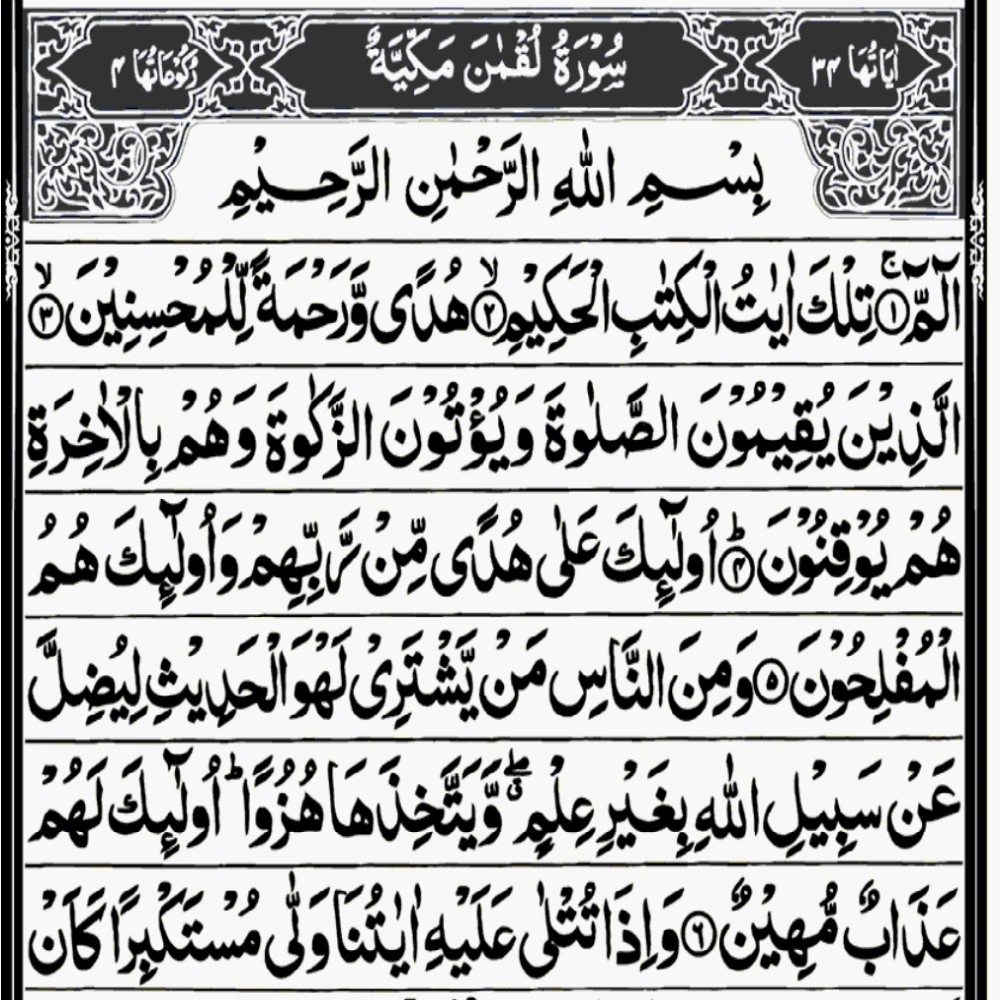 اٰيَاتُهَا ٣٤ سُوْرَةُ لُقْمٰنَ مَكِّيَّةٌ رُكُوْعَاتُهَا ٤
بِسْمِ اللّٰهِ الرَّحْمٰنِ الرَّحِيْمِ
الٓمّٓ ۚ﴿١﴾ تِلْكَ اٰيٰتُ الْكِتٰبِ الْحَكِيْمِ ۙ﴿٢﴾ هُدًى وَّرَحْمَةً لِّلْمُحْسِنِيْنَ ۙ﴿٣﴾
الَّذِيْنَ يُقِيْمُوْنَ الصَّلٰوةَ وَيُؤْتُوْنَ الزَّكٰوةَ وَهُمْ بِالْاٰخِرَةِ
هُمْ يُوْقِنُوْنَ ؕ﴿٤﴾ اُولٰٓئِكَ عَلٰى هُدًى مِّنْ رَّبِّهِمْ وَاُولٰٓئِكَ هُمُ
الْمُفْلِحُوْنَ ﴿٥﴾ وَمِنَ النَّاسِ مَنْ يَّشْتَرِىْ لَهْوَ الْحَدِيْثِ لِيُضِلَّ
عَنْ سَبِيْلِ اللّٰهِ بِغَيْرِ عِلْمٍ ۖ وَّيَتَّخِذَهَا هُزُوًا ؕ اُولٰٓئِكَ لَهُمْ
عَذَابٌ مُّهِيْنٌ ﴿٦﴾ وَاِذَا تُتْلٰى عَلَيْهِ اٰيٰتُنَا وَلّٰى مُسْتَكْبِرًا كَاَنْ